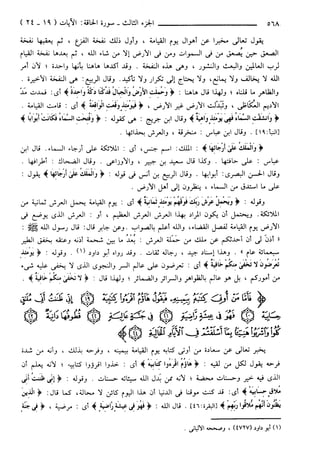 ٥٦٨ الجزء الثالث - سورة الحاقة: الآيات (١٩ - ٢٤)
يقول تعالى مخبرا عن أهوال يوم القيامة ، وأول ذلك نفخة الفزع ، ثم يعقبها نفخة
الصعق حين يُصعق من في السموات ومن في الأرض إلا من شاء الله ، ثم بعدها نفخة القيام
لرب العالمين والبعث والنشور ، وهي هذه النفخة . وقد أكدها هاهنا بأنها واحدة ؛ لأن أمر
الله لا يخالف ولا يمانع، ولا يحتاج إلى تكرار ولا تأكيد. وقال الربيع: هي النفخة الأخيرة .
والظاهر ما قلناه ؛ ولهذا قال هاهنا : ﴿ وَحُمِلَتِ الْأَرْضُ وَالْجِبَالُ فَدُكَّتَا دَكَّةً وَاحِدَةً ﴾ أي: فمدت مد
الأديم العكاظي ، وتبدلت الأرض غير الأرض ، ﴿ فَيَوْمَئِذٍ وَقَعَتِ الْوَاقِعَةُ ﴾ أي: قامت القيامة .
﴿ وَانشَقَّتِ السَّمَاءُ فَهِيَ يَوْمَئِذٍ وَاهِيَةٌ ﴾ وقال ابن جريج : هي كقوله : ﴿ وَفُتِحَتِ السَّمَاءُ فَكَانَتْ أَبْوَابًا ﴾
[النبأ:١٩]. وقال ابن عباس : منخرقة ، والعرش بحذائها .
﴿ وَالْمَلَكُ عَلَى أَرْجَائِهَا ﴾ : الملك: اسم جنس، أي : الملائكة على أرجاء السماء. قال ابن
عباس : على حافتها . وكذا قال سعيد بن جبير ، والأوزاعي . وقال الضحاك : أطرافها .
وقال الحسن البصري: أبوابها . وقال الربيع بن أنس في قوله : ﴿ وَالْمَلَكُ عَلَى أَرْجَائِهَا ﴾ يقول :
على ما استدق من السماء ، ينظرون إلى أهل الأرض .
وقوله : ﴿ وَيَحْمِلُ عَرْشَ رَبِّكَ فَوْقَهُمْ يَوْمَئِذٍ ثَمَانِيَةٌ ﴾ أي : يوم القيامة يحمل العرش ثمانية من
الملائكة. ويحتمل أن يكون المراد بهذا العرش العرش العظيم ، أو : العرش الذي يوضع في
الأرض يوم القيامة لفصل القضاء، والله أعلم بالصواب .وعن جابر قال: قال رسول الله ﷺ :
« أُذن لي أن أحدثكم عن ملك من حَمَلَة العرش : بُعد ما بين شحمة أذنه وعنقه بخفق الطير
سبعمائة عام » . وهذا إسناد جيد ، رجاله ثقات . وقد رواه أبو داود (١) . وقوله : ﴿ يَوْمَئِذٍ
تُعْرَضُونَ لَا تَخْفَى مِنكُمْ خَافِيَةٌ ﴾ أي : تعرضون على عالم السر والنجوى الذي لا يخفى عليه شيء
من أموركم ، بل هو عالم بالظواهر والسرائر والضمائر ؛ ولهذا قال : ﴿ لَا تَخْفَى مِنكُمْ خَافِيَةٌ ﴾ .
يخبر تعالى عن سعادة من أوتي كتابه يوم القيامة بيمينه ، وفرحه بذلك ، وأنه من شدة
فرحه يقول لكل من لقيه : ﴿ هَاؤُمُ اقْرَءُوا كِتَابِيَهْ ﴾ أي : خذوا اقرؤوا كتابيه ؛ لأنه يعلم أن
الذي فيه خير وحسنات محضة ؛ لأنه ممن بَدل الله سيئاته حسنات . وقوله : ﴿ إِنِّي ظَنَنتُ أَنِّي
مُلَاقٍ حِسَابِيَهْ ﴾ أي: قد كنت موقنا في الدنيا أن هذا اليوم كائن لا محالة، كما قال: ﴿ الَّذِينَ
يَظُنُّونَ أَنَّهُم مُّلَاقُو رَبِّهِمْ ﴾ [البقرة:٤٦] . قال الله : ﴿ فَهُوَ فِي عِيشَةٍ رَّاضِيَةٍ ﴾ أي : مرضية ، ﴿ فِي جَنَّةٍ
(١) أبو داود (٤٧٢٧) ، وصححه الألباني .